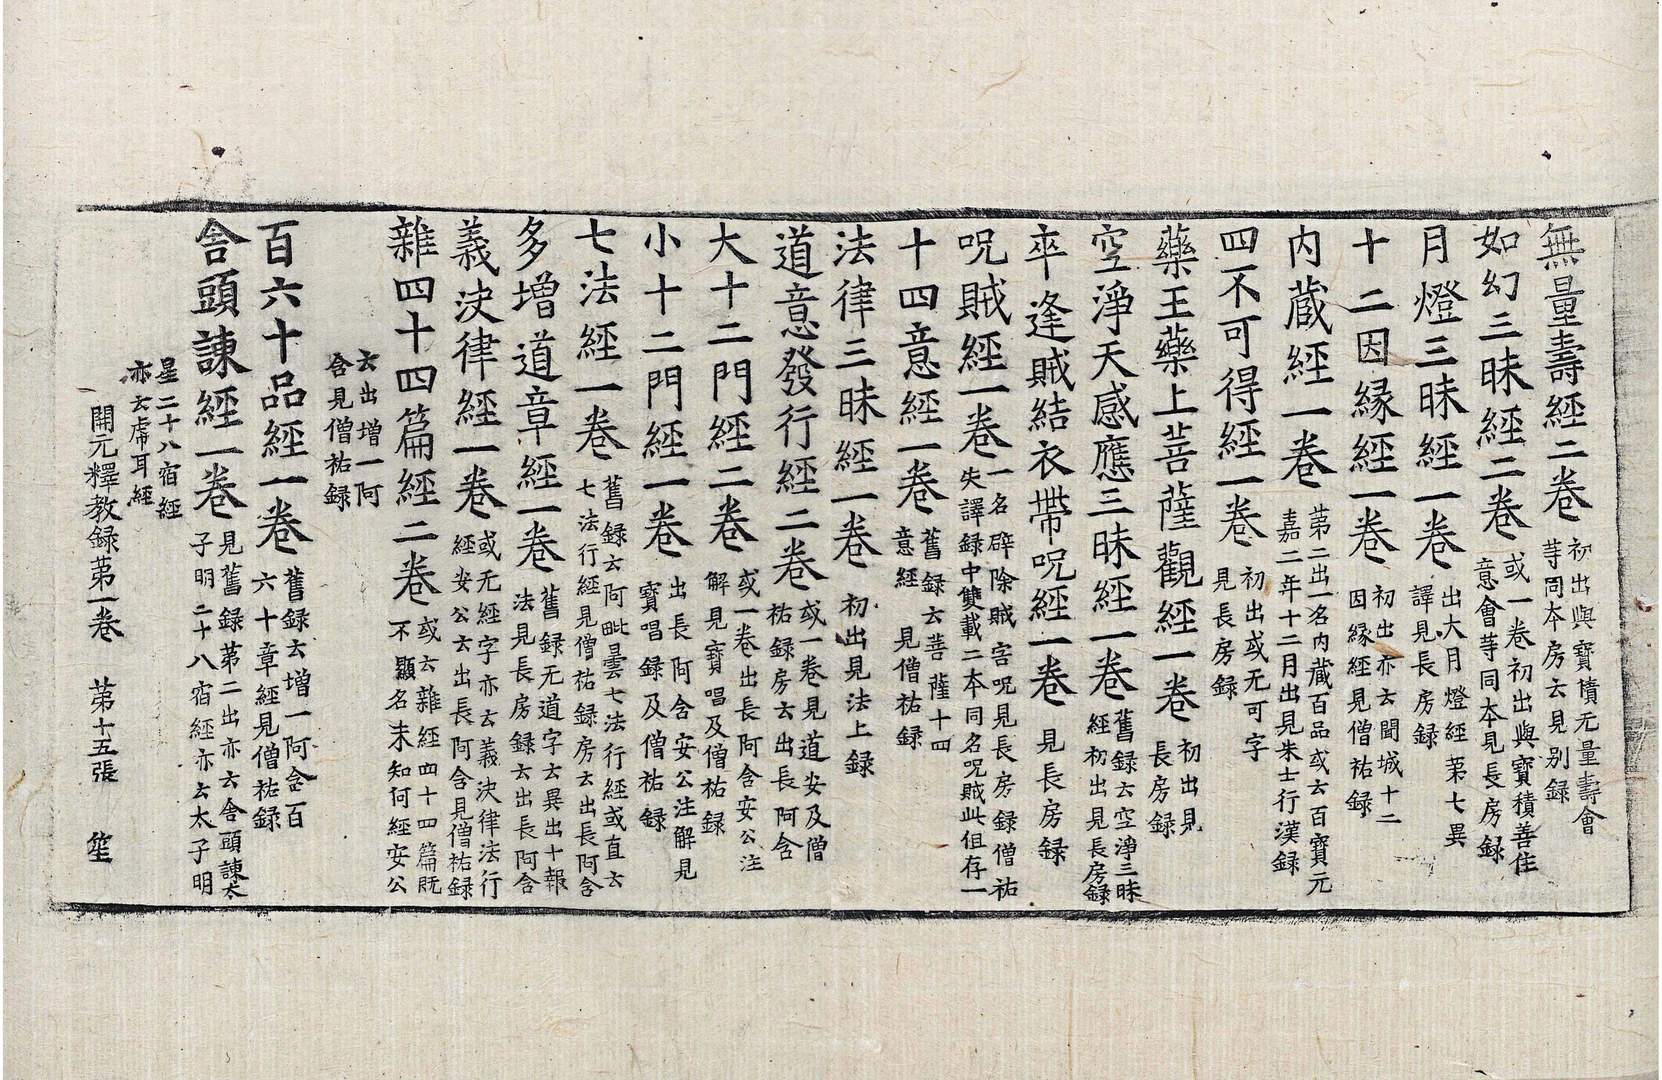 無量壽經二卷 初出與寶積无量壽會等同本房云見别録
如幻三昧經二卷 或一卷初出與寶積善住意會等同本見長房録
月燈三昧經一卷 出大月燈經苐七異譯見長房録
十二因縁經一卷 初出亦云聞城十二因縁經見僧祐録
内蔵經一卷 苐二出一名内蔵百品或云百寶元嘉二年十二月出見朱士行漢録
四不可得經一卷 初出或无可字見長房録
藥王藥上菩薩觀經一卷 初出見長房録
空淨天感應三昧經一卷 舊録云空淨三昧經初出見長房録
卒逢賊結衣帶呪經一卷 見長房録
呪賊經一卷 一名辟除賊害呪見長房録僧祐失譯録中雙載二本同名呪賊此但存一
十四意經一卷 舊録云菩薩十四意經 見僧祐録
法律三昧經一卷 初出見法上録
道意發行經二卷 或一卷見道安及僧祐録房云出長阿含
大十二門經二卷 或一卷出長阿含安公注解見寶唱及僧祐録
小十二門經一卷 出長阿含安公注解見寶唱録及僧祐録
七法經一卷 舊録云阿毗曇七法行經或直云七法行經見僧祐録房云出長阿含
多増道章經一卷 舊録无道字云異出十報法見長房録云出長阿含
義決律經一卷 或无經字亦云義決律法行經安公云出長阿含見僧祐録
雜四十四篇經二卷 或云雜經四十四篇既不顯名未知何經安公
云出増一阿含見僧祐録
百六十品經一卷 舊録云増一阿含百六十章經見僧祐録
舎頭諫經一卷 見舊録第二出亦云舎頭諫太子明二十八宿經亦云太子明
星二十八宿經亦云虎耳經
開元釋教録苐一卷 苐十五張 笙